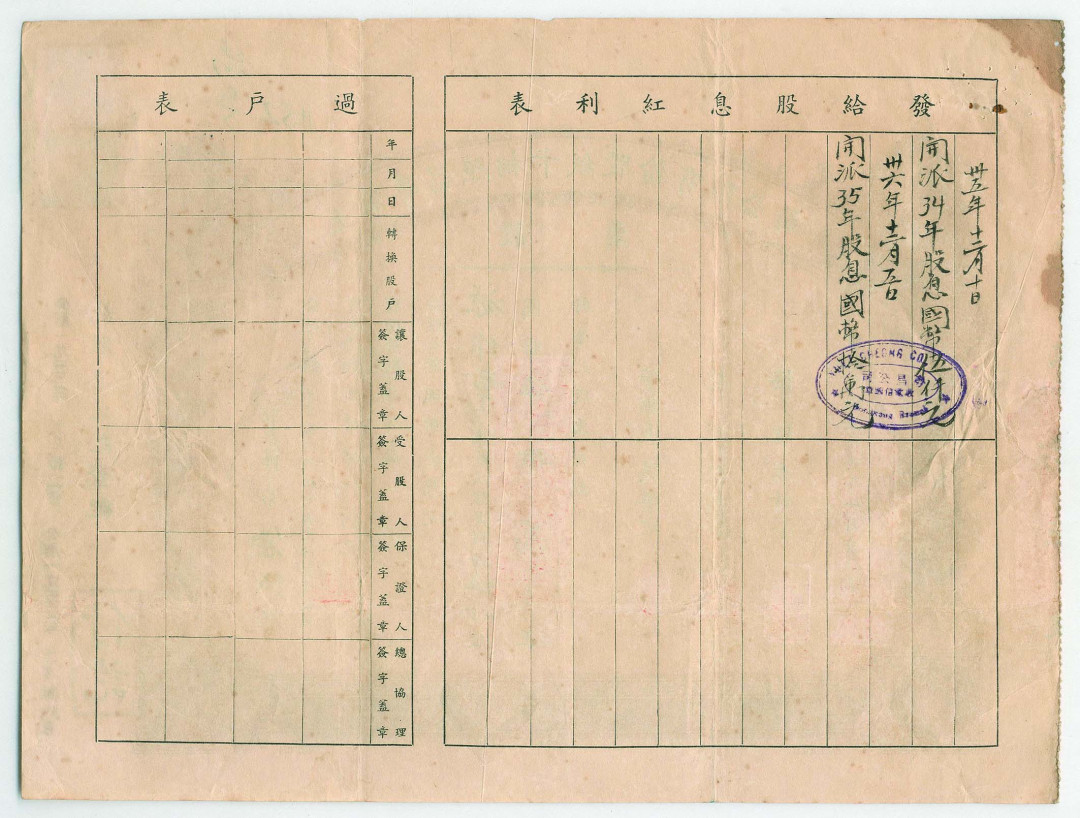 發給股息紅利表
卅五年十二月十日
開派34年股息國幣伍仟元
卅六年十二月五日
開派35年股息國幣拾萬元
CHEONG CO.
過戶表
年
月
日
轉換股戶
讓股人
簽字蓋章
受股人
簽字蓋章
保證人
簽字蓋章
總協理
簽字蓋章